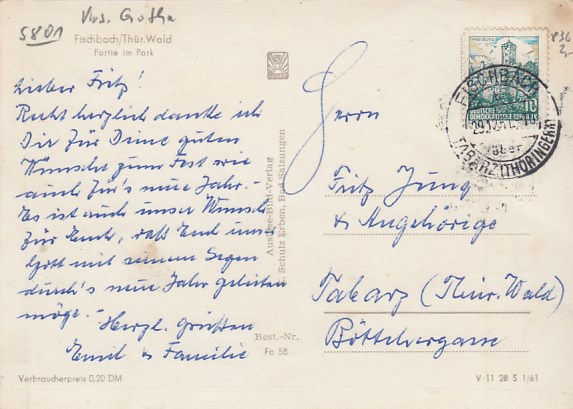 5801
Krs. Gotha
Fischbach/Thür. Wald
Partie im Park
Lieber Fritz!
Recht herzlich danke ich
Dir für Deine guten
Wünsche zum Fest wie
auch für's neue Jahr.-
Es ist auch unser Wunsch
für Euch, daß Euch unser
Gott mit seinem Segen
durch's neue Jahr geleiten
möge.- Herzl. Grüßen
Emil & Familie
Verbraucherpreis 0,20 DM
Auslese-Bild-Verlag
Schulz Erben, Bad Salzungen
Best.-Nr.
Fb 58
WARTBURG
10
DEUTSCHE
DEMOKRATISCHE REPUBLIK
FISCHBACH
über
TABARZ (THÜRINGEN)
Herrn
Fritz Jung
& Angehörige
Tabarz (Thür. Wald)
Böttchergasse
V 11 28 S 1/61